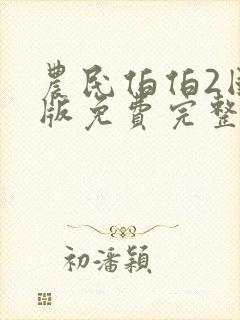 農民伯伯2
版免费完整
初潘颖